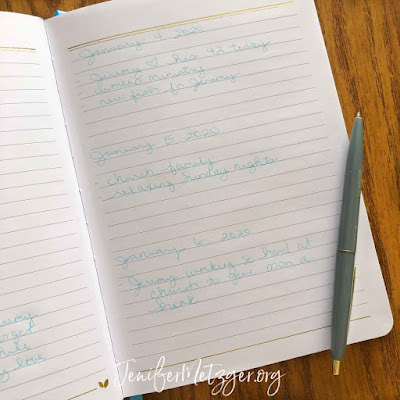 January 4, 2020
- Jeremy ♡ 42 today
- women's ministry
- new for Jeremy
January 5, 2020
- church family
- relaxing Sunday nights
January 6, 2020
- Jeremy working so hard at
church to give mom a
break
love
JeniferMetzger.org